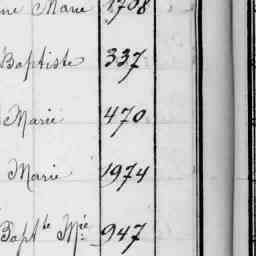 Marie 1708
Baptiste 337
Marie 470
Marie 1974
Bapt.te Mie 947